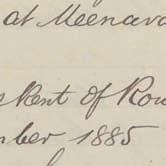 at Meenava
Rent of Rou
ber 1885